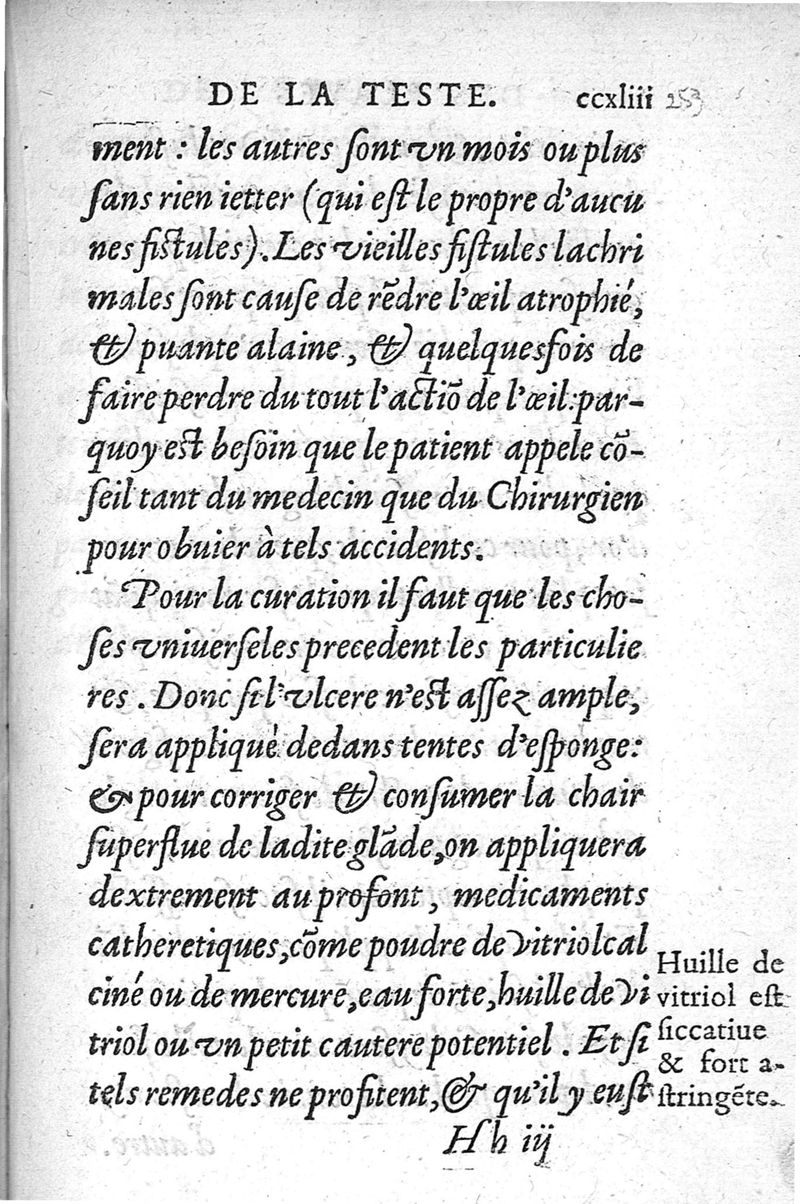 DE LA TESTE. ccxliii 253
ment : les autres ſont vn mois ou plus
ſans rien ietter (qui eſt le propre d'aucu
nes fiſtules). Les vieilles fiſtules lachri
males ſont cauſe de rēdre l'œil atrophié,
& puante alaine, & quelquesfois de
faire perdre du tout l'actiō de l'œil: par-
quoy eſt beſoin que le patient appele cō-
ſeil tant du medecin que du Chirurgien
pour obuier à tels accidents.
Pour la curation il faut que les cho-
ſes vniuerſeles precedent les particulie
res. Donc ſi l'vlcere n'eſt aſſez ample,
ſera appliqué dedans tentes d'eſponge:
& pour corriger & conſumer la chair
ſuperflue de ladite glāde, on appliquera
dextrement au profont, medicaments
catheretiques, cōme poudre de Vitriol cal
ciné ou de mercure, eau forte, huille de Vi
triol ou vn petit cautere potentiel. Et ſi
tels remedes ne profitent, & qu'il y euſt
Huille de
vitriol eſt
ſiccatiue
& fort a-
ſtringēte.
Hh iij